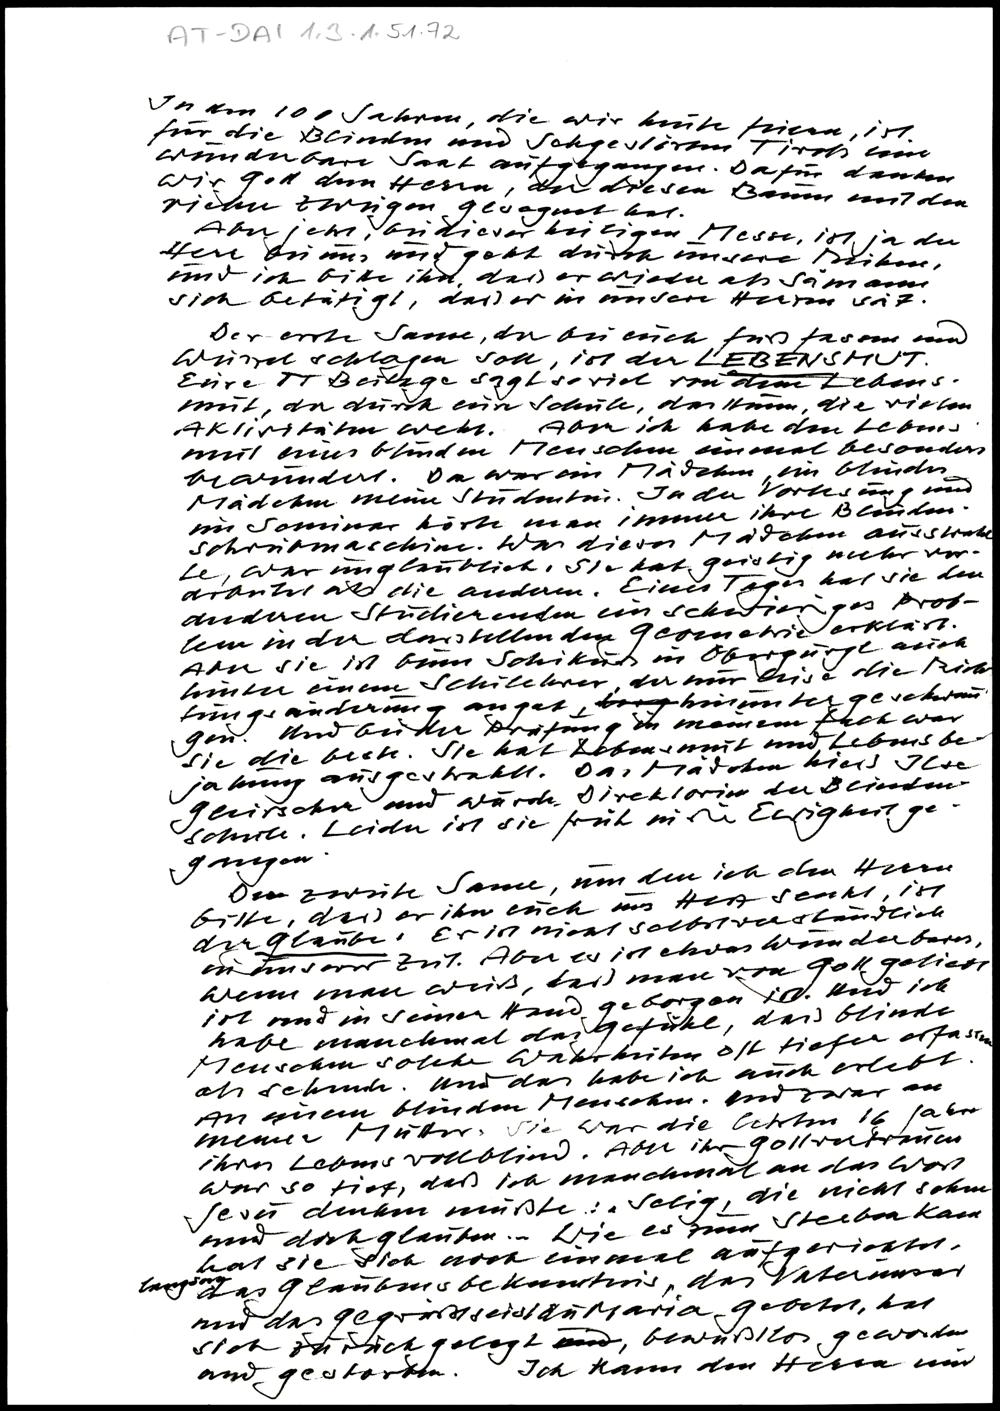 AT-DAI 1.3.1.51.72
In den 100 Jahren, die wir heute feiern, ist
für die Blinden und Sehgestörten Tirols eine
wunderbare Saat aufgegangen. Dafür danken
wir Gott dem Herrn, der diesen Baum mit den
vielen Zweigen gesegnet hat.
Aber jetzt, bei dieser heiligen Messe, ist ja der
Herr bei uns und geht durch unsere Reihen,
und ich bitte ihn, dass er wieder als Sämann
sich betätigt, dass er in unsere Herzen sät.
Der erste Same, der bei euch fuß fassen und
Wurzel schlagen soll, ist der LEBENSMUT.
Eure TT Beilage sagt soviel von dem Lebens-
mut, der durch eure Schule, das Haus, die vielen
Aktivitäten weht. Aber ich habe den Lebens
mut eines blinden Menschen einmal besonders
bewundert. Da war ein Mädchen, ein blindes
Mädchen meine Studentin. In der Vorlesung und
im Seminar hörte man immer ihre Blinden-
schreibmaschine. Was dieses Mädchen ausstrahl
te, war unglaublich. Sie hat geistig mehr ver-
arbeitet als die anderen. Eines Tages hat sie den
anderen Studierenden ein schwieriges Prob-
lem in der darstellenden Geometrie erklärt.
Aber sie ist beim Schikurs in Obergurgl auch
hinter einem Schilehrer, der nur leise die Rich
tungsänderung angab, hinunter geschwun
gen. Und bei der Prüfung in meinem Fach war
sie die beste. Sie hat Lebensmut und Lebensbe-
jahung ausgestrahlt. Das Mädchen hiess Ilse
Gleirscher und wurde Direktorin der Blinden-
schule. Leider ist sie früh in die Ewigkeit ge-
gangen.
Der zweite Same, um den ich den Herrn
bitte, dass er ihn euch ins Herz senkt, ist
der Glaube. Er ist nicht selbstverständlich
in unserer Zeit. Aber es ist etwas Wunderbares,
wenn man weiß, dass man von Gott geliebt
ist und in seiner Hand geborgen ist. Und ich
habe manchmal das Gefühl, dass blinde
Menschen solche Wahrheiten oft tiefer erfassen
als sehende. Und das habe ich auch erlebt.
An einem blinden Menschen. Und zwar an
meiner Mutter. Sie war die letzten 16 Jahre
ihres Lebens vollblind. Aber ihr Gottvertrauen
war so tief, daß ich manchmal an das Wort
Jesu denken mußte: "Selig, die nicht sehen
und doch glauben.." Wie es zum Sterben kam
hat sie sich noch einmal aufgerichtet,
langsam das Glaubensbekenntnis, das Vaterunser
und das Gegrüßtseistdu Maria gebetet, hat
sich zurück gelegt und, bewußtlos geworden
und gestorben. Ich kann den Herrn nur